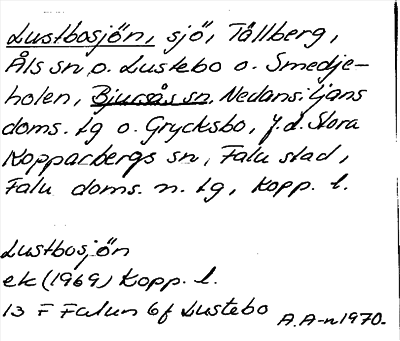 Lustbosjön, sjö, Tällberg,
Åls sn o. Lustebo o. Smedje-
holen, Bjursås sn, Nedansiljans
doms. tg o. Grycksbo, f.d. Stora
Kopparbergs sn, Falu stad,
Falu doms. n. tg, Kopp. l.
Lustbosjön
ek (1969) Kopp. l.
13 F Falun 6f Lustebo
A.A-n 1970.